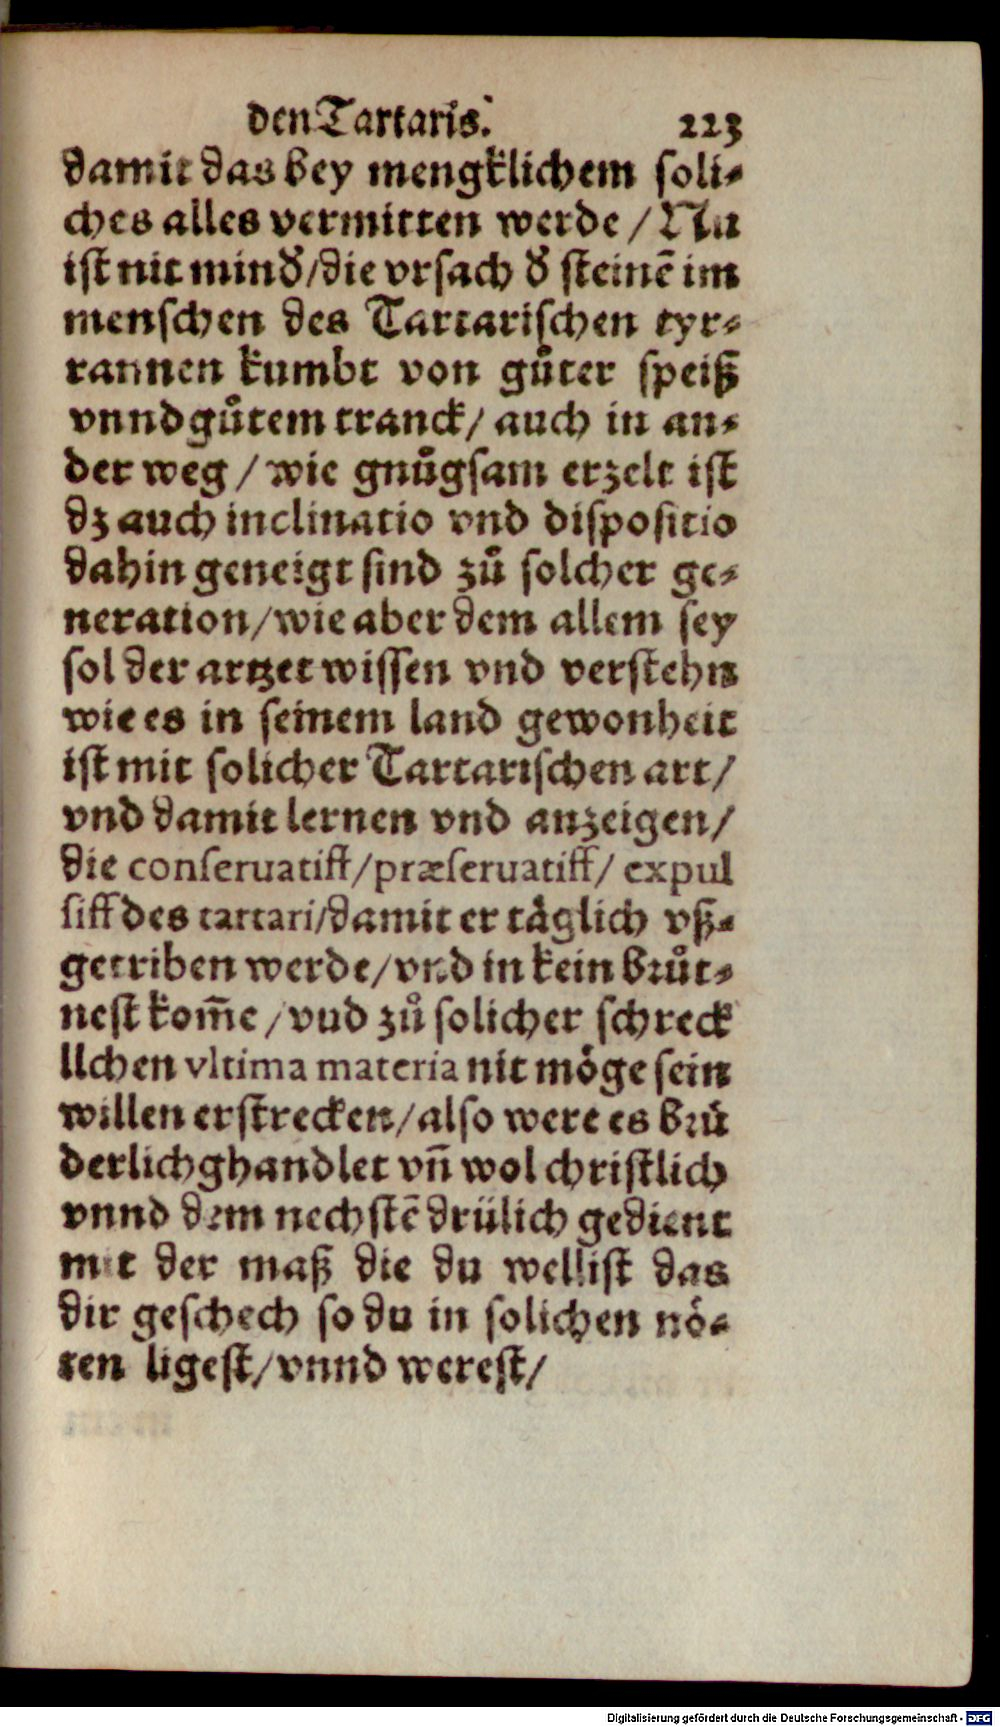 den Tartaris. 223
damit das bey mengklichem soli⸗
ches alles vermitten werde / Nu
ist nit mindꝰ/die vrsach ꝺ steinẽ im
menschen des Tartarischen tyr⸗
rannen kumbt von gůter speiß
vnnd gůtem tranck/ auch in an⸗
der weg / wie gnůgsam erzelt ist
dz auch inclinatio vnd dispositio
dahin geneigt sind zů solcher ge⸗
neration/wie aber dem allem sey
sol der artzet wissen vnd verstehn
wie es in seinem land gewonheit
ist mit solicher Tartarischen art/
vnd damit lernen vnd anzeigen/
die conseruatiff/præseruatiff/ expul
siff des tartari/damit er täglich vß⸗
getriben werde/vnd in kein brůt⸗
nest kom̃e /vud zů solicher schreck
llchen vltima materia nit möge sein
willen erstrecken/also were es brü
derlich ghandlet vñ wol christlich
vnnd dem nechstẽ drülich gedient
mit der maß die du wellist das
dir geschech so du in solichen nö⸗
ten ligest/vnnd werest/
Digitalisierung gefördert durch die Deutsche Forschungsgemeinschaft - DFG